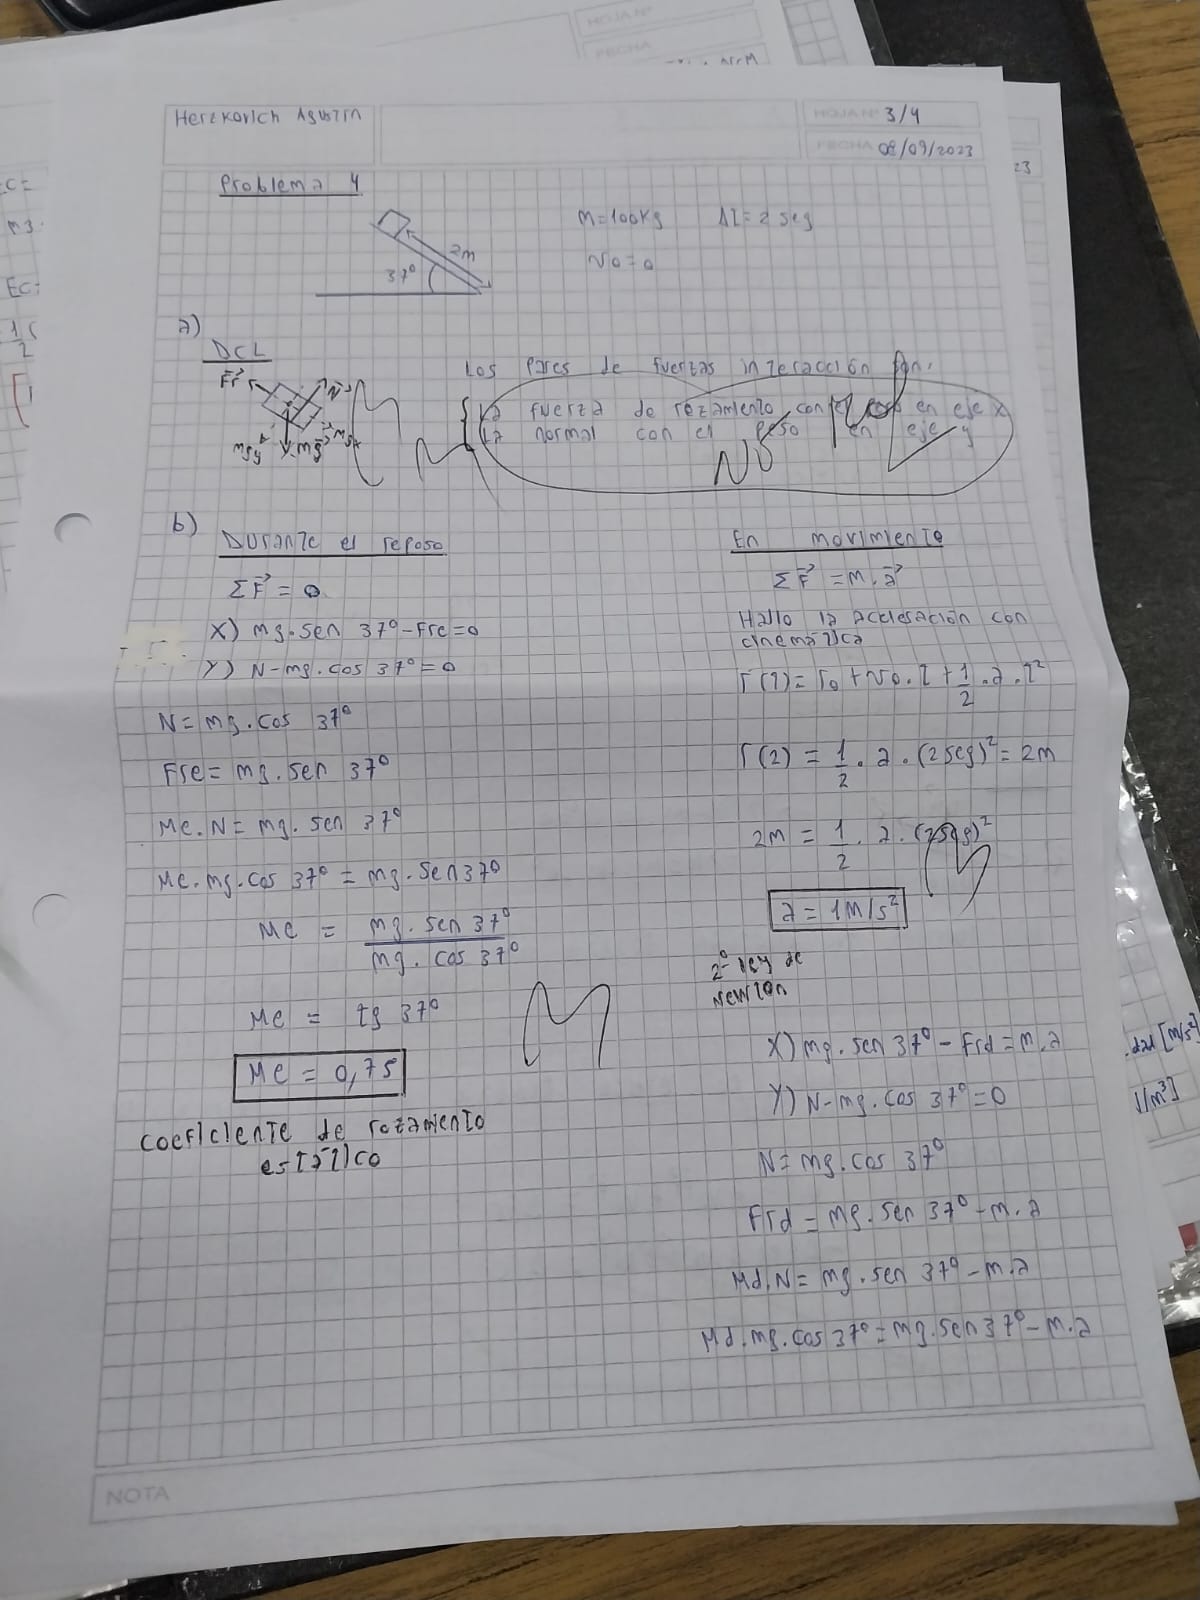 HOJA Nº
FECHA
Herzkovich Agustin
HOJA Nº 3/4
FECHA 08/09/2023
23
Problema 4
M=100Kg Δt= 2 seg
V0=0
2m
37º
a)
DCL
Fr N
mgy mg mgx
Los Pares de fuerzas interacción son:
La fuerza de rozamiento con el peso en eje x
La normal con el peso en eje y
NO
b)
Durante el reposo
ΣF = 0
X) mg.sen 37º-Fre=0
Y) N-mg.cos 37º=0
N=mg.cos 37º
Fre= mg.sen 37º
Me.N= mg.sen 37º
Me.mg.cos 37º = mg.sen37º
Me = mg.sen 37º / mg.cos 37º
Me = tg 37º
Me = 0,75
coeficiente de rozamiento
estático
En movimiento
ΣF =m.a
Hallo la aceleración con
cinemática
r(t)= r0 +V0.t +1/2.a.t²
r(2) = 1/2.a.(2seg)²= 2m
2m = 1/2.a.(2seg)²
a= 1m/s²
2º ley de
Newton
X) mg.sen 37º - Frd=m.a
Y) N-mg.cos 37º=0
N= mg.cos 37º
Frd = mg.sen 37º-m.a
Md.N= mg.sen 37º-m.a
Md.mg.cos 37º=mg.sen37º-m.a
[m/s²]
J/m³]
NOTA